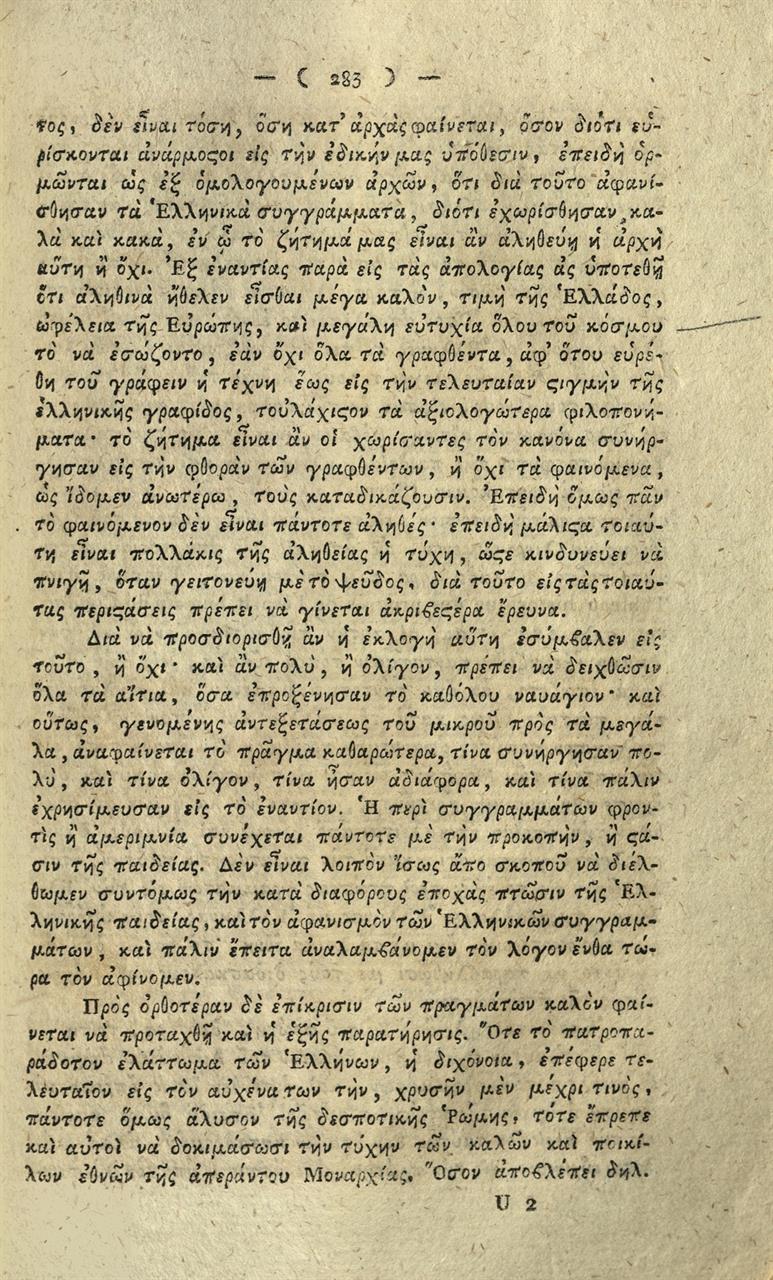 — ( 283 ) —
τος, δὲν εἶναι τόση, ὅση κατ' ἀρχὰς φαίνεται, ὅσον διότι εὑ-
ρίσκονται ἀνάρμοςοι εἰς τὴν ἐδικήν μας ὑπόθεσιν, ἐπειδὴ ὁρ-
μῶνται ὡς ἐξ ὁμολογουμένων ἀρχῶν, ὅτι διὰ τοῦτο ἀφανί-
σθησαν τὰ Ἑλληνικὰ συγγράμματα, διότι ἐχωρίσθησαν κα-
λὰ καὶ κακὰ, ἐν ᾧ τὸ ζήτημά μας εἶναι ἂν ἀληθεύῃ ἡ ἀρχὴ
αὕτη ἢ ὄχι. Ἐξ ἐναντίας παρὰ εἰς τὰς ἀπολογίας ἂς ὑποτεθῇ
ὅτι ἀληθινὰ ἤθελεν εἶσθαι μέγα καλὸν, τιμὴ τῆς Ἑλλάδος,
ὠφέλεια τῆς Εὐρώπης, καὶ μεγάλη εὐτυχία ὅλου τοῦ κόσμου
τὸ νὰ ἐσώζοντο, ἐὰν ὄχι ὅλα τὰ γραφθέντα, ἀφ' ὅτου εὑρέ-
θη τοῦ γράφειν ἡ τέχνη ἕως εἰς τὴν τελευταίαν ςιγμὴν τῆς
ἑλληνικῆς γραφίδος, τοὐλάχιςον τὰ ἀξιολογώτερα φιλοπονή-
ματα· τὸ ζήτημα εἶναι ἂν οἱ χωρίσαντες τὸν κανόνα συνήρ-
γησαν εἰς τὴν φθορὰν τῶν γραφθέντων, ἢ ὄχι τὰ φαινόμενα,
ὡς ἴδομεν ἀνωτέρω, τοὺς καταδικάζουσιν. Ἐπειδὴ ὅμως πᾶν
τὸ φαινόμενον δὲν εἶναι πάντοτε ἀληθές· ἐπειδὴ μάλιςα τοιαύ-
τη εἶναι πολλάκις τῆς ἀληθείας ἡ τύχη, ὥςε κινδυνεύει νὰ
πνιγῇ, ὅταν γειτονεύῃ μὲ τὸ ψεῦδος, διὰ τοῦτο εἰς τὰς τοιαύ-
τας περιςάσεις πρέπει νὰ γίνεται ἀκριβεςέρα ἔρευνα.
Διὰ νὰ προσδιορισθῇ ἂν ἡ ἐκλογὴ αὕτη ἐσύμβαλεν εἰς
τοῦτο, ἢ ὄχι· καὶ ἂν πολὺ, ἢ ὀλίγον, πρέπει νὰ δειχθῶσιν
ὅλα τὰ αἴτια, ὅσα ἐπροξένησαν τὸ καθόλου ναυάγιον· καὶ
οὕτως, γενομένης ἀντεξετάσεως τοῦ μικροῦ πρὸς τὰ μεγά-
λα, ἀναφαίνεται τὸ πρᾶγμα καθαρώτερα, τίνα συνήργησαν πο-
λὺ, καὶ τίνα ὀλίγον, τίνα ἦσαν ἀδιάφορα, καὶ τίνα πάλιν
ἐχρησίμευσαν εἰς τὸ ἐναντίον. Ἡ περὶ συγγραμμάτων φρον-
τὶς ἢ ἀμεριμνία συνέχεται πάντοτε μὲ τὴν προκοπὴν, ἢ ςά-
σιν τῆς παιδείας. Δὲν εἶναι λοιπὸν ἴσως ἄπο σκοποῦ νὰ διέλ-
θωμεν συντόμως τὴν κατὰ διαφόρους ἐποχὰς πτῶσιν τῆς Ἑλ-
ληνικῆς παιδείας, καὶ τὸν ἀφανισμὸν τῶν Ἑλληνικῶν συγγραμ-
μάτων, καὶ πάλιν ἔπειτα ἀναλαμβάνομεν τὸν λόγον ἔνθα τώ-
ρα τὸν ἀφίνομεν.
Πρὸς ὀρθοτέραν δὲ ἐπίκρισιν τῶν πραγμάτων καλὸν φαί-
νεται νὰ προταχθῇ καὶ ἡ ἑξῆς παρατήρησις. Ὅτε τὸ πατροπα-
ράδοτον ἐλάττωμα τῶν Ἑλλήνων, ἡ διχόνοια, ἐπέφερε τε-
λευταῖον εἰς τὸν αὐχένα των τὴν, χρυσῆν μὲν μέχρι τινὸς,
πάντοτε ὅμως ἅλυσον τῆς δεσποτικῆς Ῥώμης, τότε ἔπρεπε
καὶ αὐτοὶ νὰ δοκιμάσωσι τὴν τύχην τῶν καλῶν καὶ ποικί-
λων ἐθνῶν τῆς ἀπεράντου Μοναρχίας. Ὅσον ἀποβλέπει δηλ.
U 2